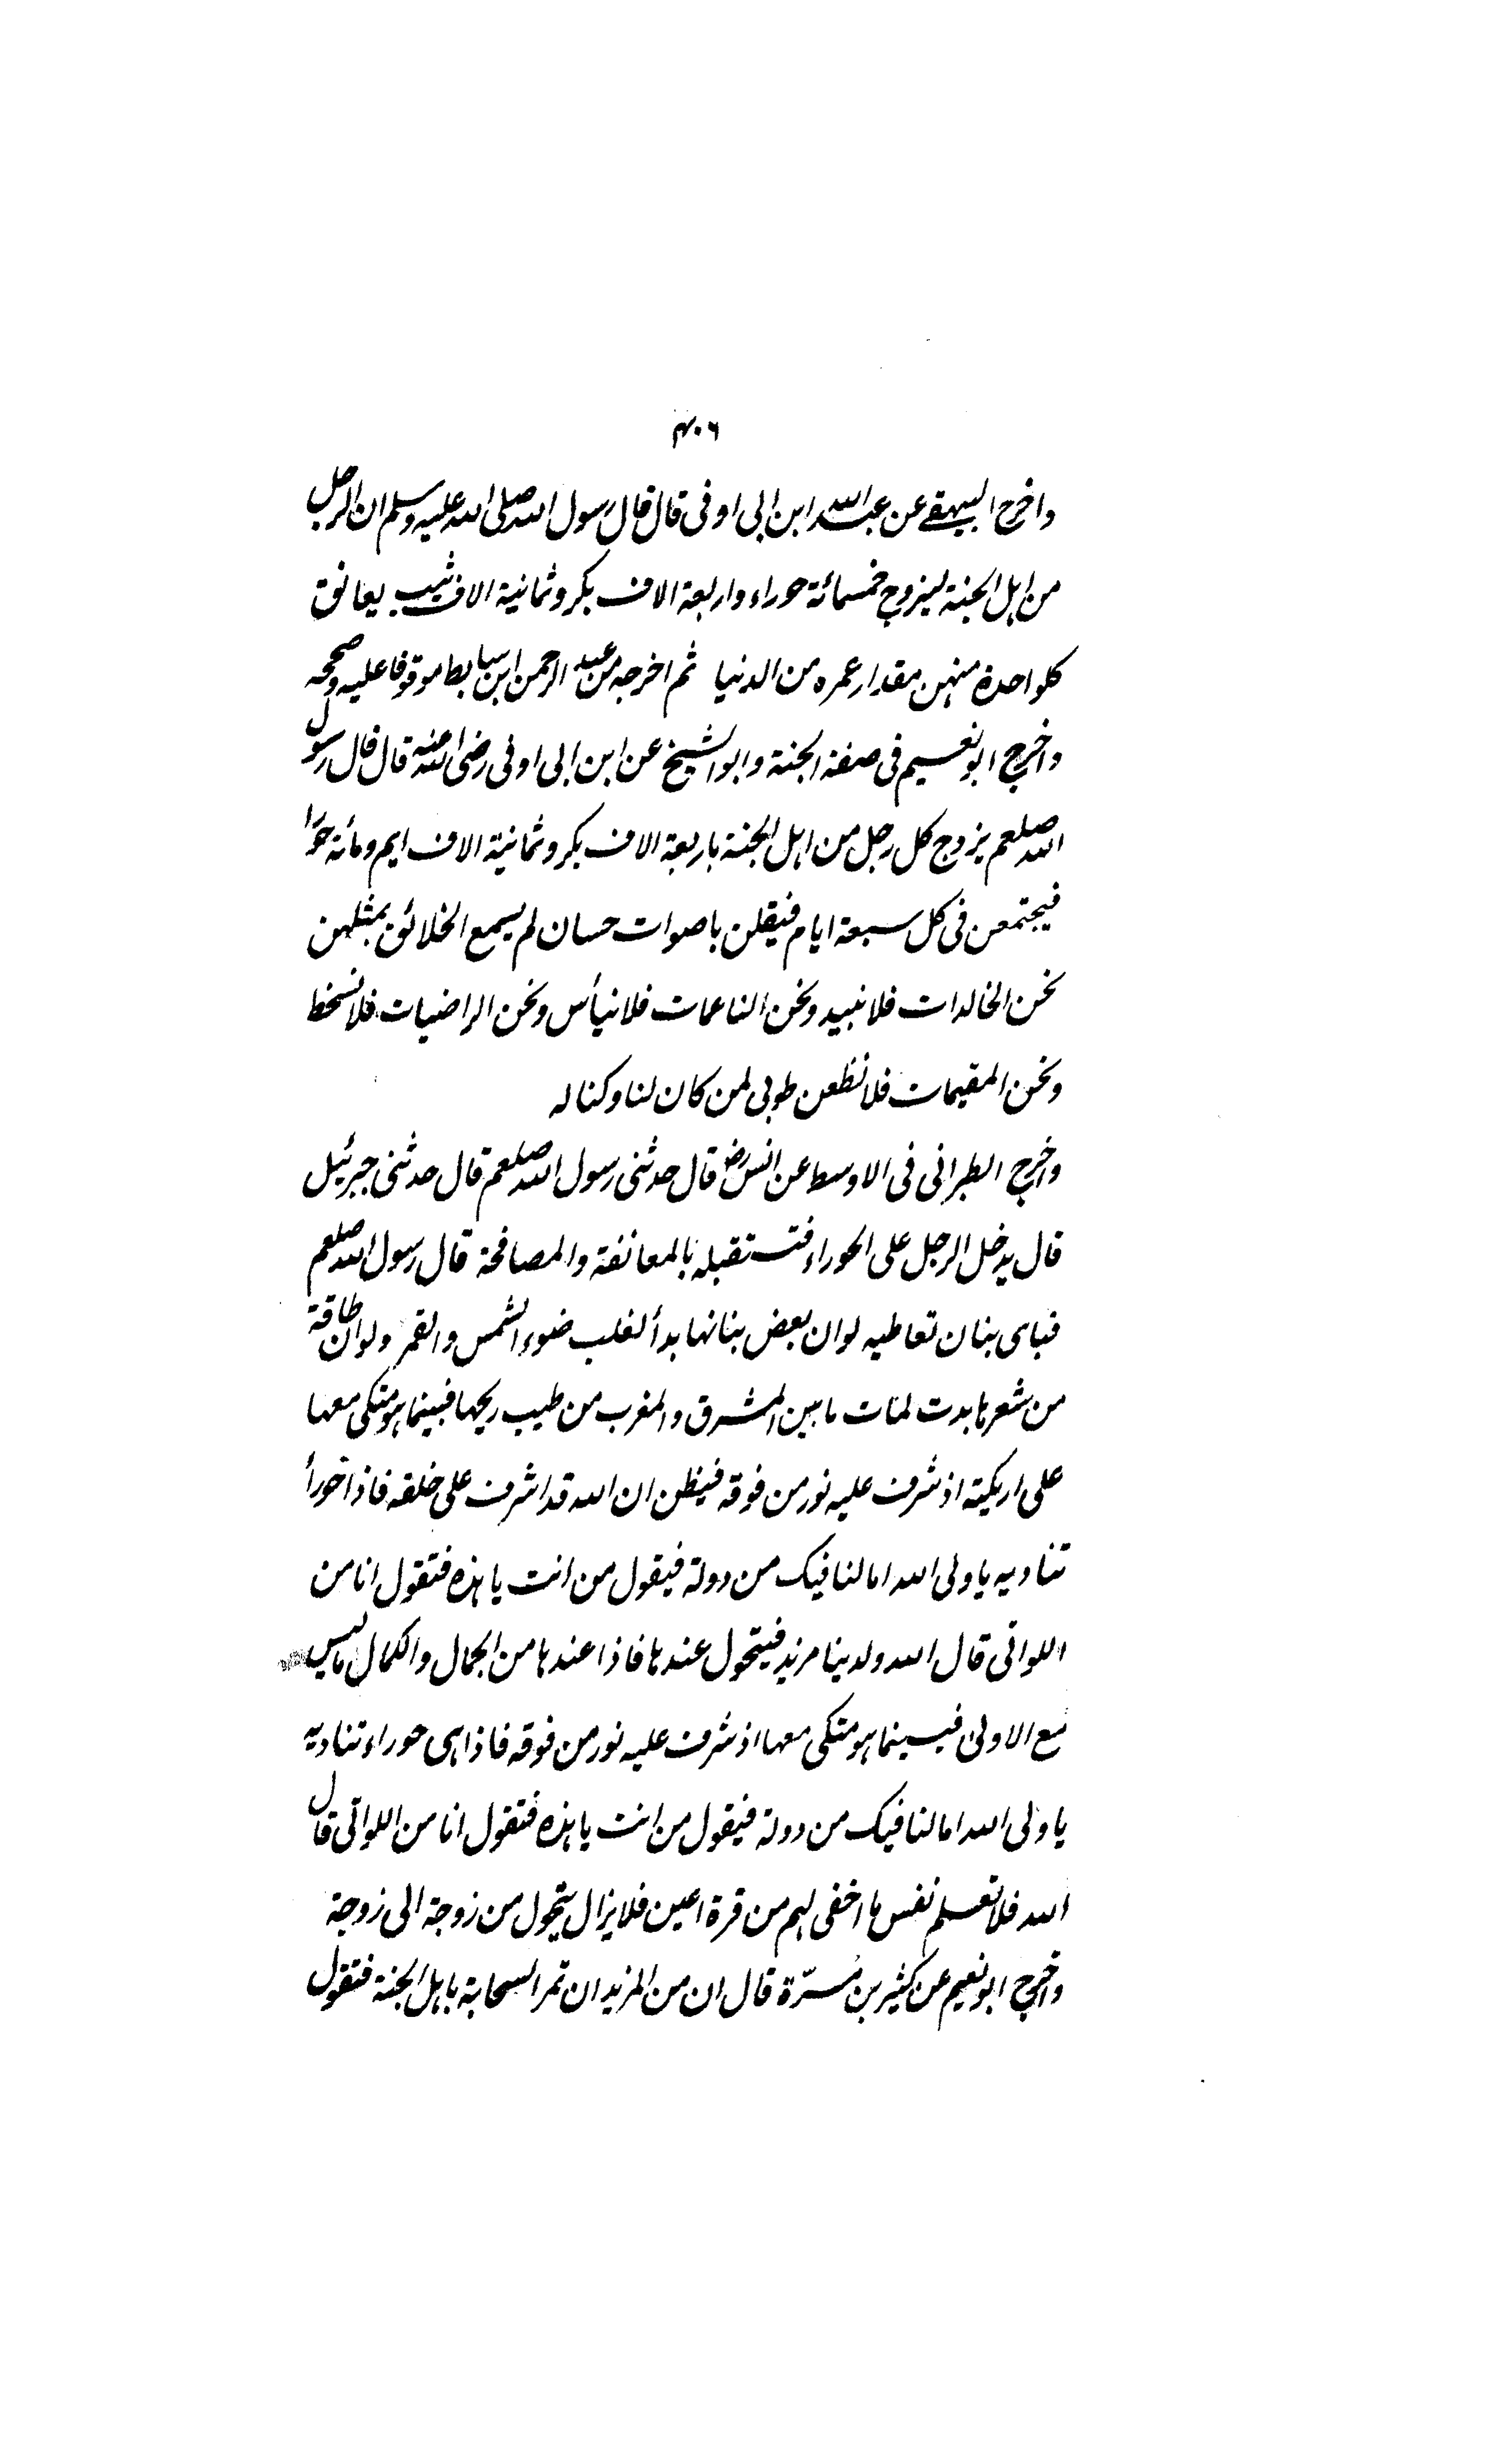 ۴۰۶
واخرج البیہقے عن عبداللہ ابن ابی اوفی قال قال رسول اللہ صلی اللہ علیہ وسلم ان الرجل
من اہل الجنۃ لیزوج خمسمائۃ حوراء واربعۃ الاف بکر وثمانیۃ الاف ثیب یعانق
کلواحدۃ منہن مقدار عمرہ من الدنیا ثم اخرجہ من عبد الرحمن ابن سابط موقوفا علیہ وصححہ
واخرج ابونعیم فی صفۃ الجنۃ وابوالشیخ عن ابن ابی اوفی رضی اللہ عنہ قال قال رسول
اللہ صلعم یزوج کل رجل من اہل الجنۃ باربعۃ الاف بکر وثمانیۃ الاف ایم ومائۃ حورا
فیجتمعن فی کل سبعۃ ایام فیقلن باصوات حسان لم یسمع الخلائق بمثلہن
نحن الخالدات فلا نبید ونحن الناعمات فلا نیأس ونحن الراضیات فلا نسخط
ونحن المقیمات فلا نظعن طوبی لمن کان لنا وکنا لہ
واخرج الطبرانی فی الاوسط عن انس رض قال حدثنی رسول اللہ صلعم قال حدثنی جبرئیل
قال یدخل الرجل علی الحوراء فتستقبلہ بالمعانقۃ والمصافحۃ قال رسول اللہ صلعم
فبای بنان تعاطیہ لو ان بعض بنانہا بدأ لغلب ضوء الشمس والقمر ولو ان طاقۃ
من شعرہا بدت لمات ما بین المشرق والمغرب من طیب ریحہا فبینما ہو متکی معہا
علی اریکتہ اذ شرف علیہ نور من فوقہ فیظن ان اللہ قد اشرف علی خلقہ فاذا حورأ
تنادیہ یا ولی اللہ اما لنا فیک من دولۃ فیقول من انت یا ہذہ فتقول انا من
اللواتی قال اللہ ولدینا مزید فیتحول عندہا فاذا عندہا من الجمال والکمال ما لیس
مع الاولی فبینما ہو متکی معہا اذ شرف علیہ نور من فوقہ فاذا ہی حوراء تنادیہ
یا ولی اللہ اما لنا فیک من دولۃ فیقول من انت یا ہذہ فتقول انا من اللواتی قال
اللہ فلا تعلم نفس ما اخفی لہم من قرۃ اعین فلا یزال یتحول من زوجۃ الی زوجۃ
واخرج ابونعیم عن کثیر بن مرّۃ قال ان من المزید ان تمر السحابۃ باہل الجنۃ فتقول